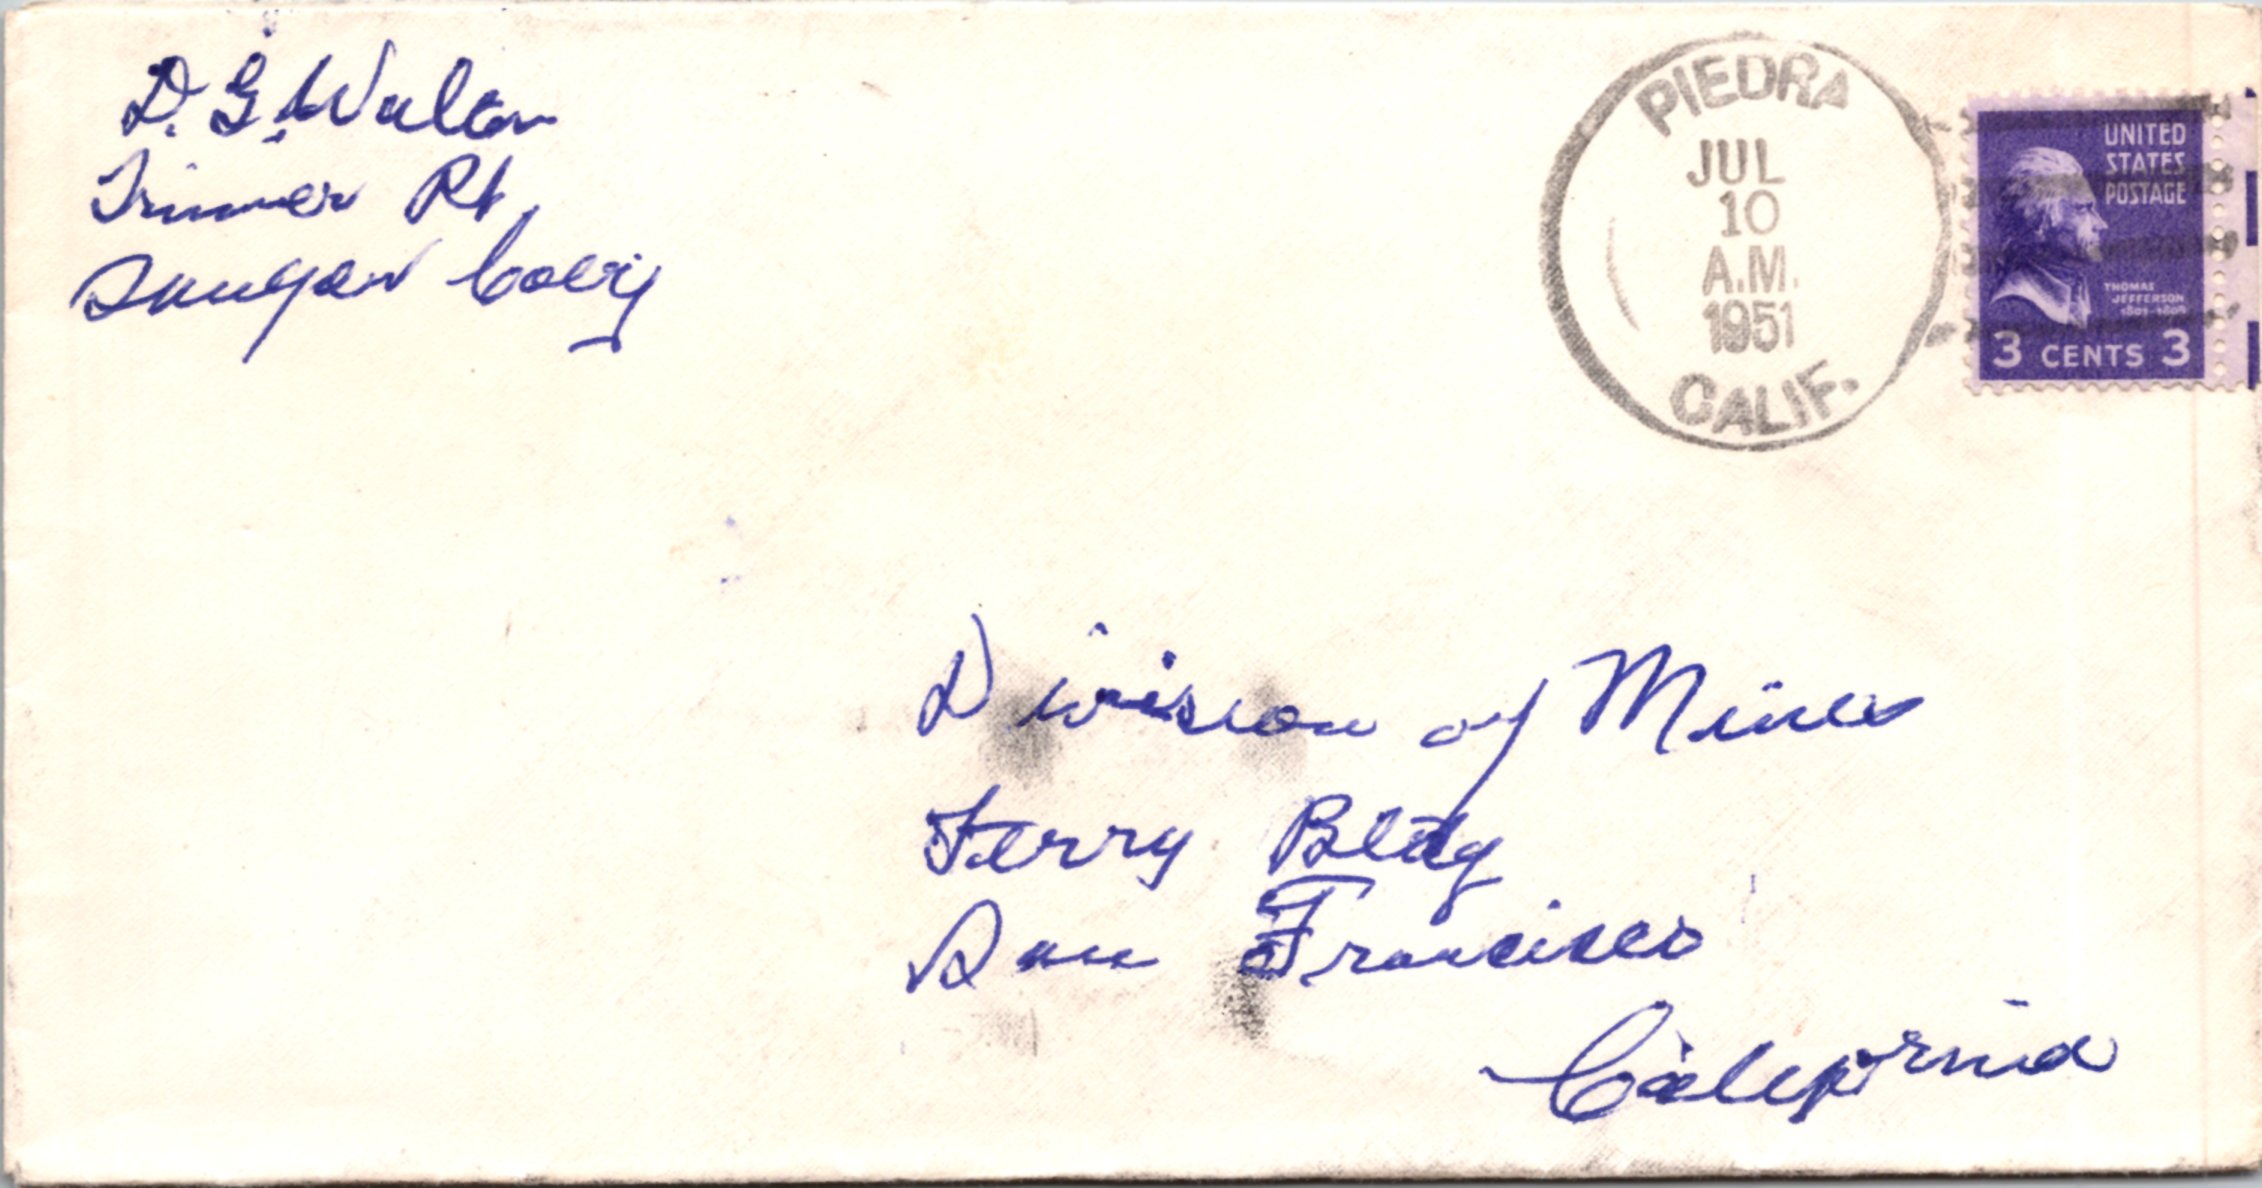 D. G. Walton
Trimmer Rt
Sanger Calif
PIEDRA
JUL
10
A.M.
1951
CALIF.
UNITED
STATES
POSTAGE
THOMAS
JEFFERSON
1801-1809
3 CENTS 3
Division of Mines
Ferry Bldg
San Francisco
California